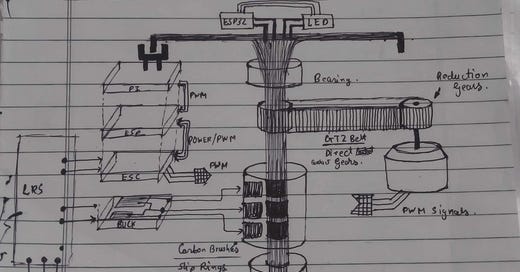 ESP32
LED
Bearing.
Reduction
Gears.
PI
PWM
ESP
POWER/PWM
GT2 Belt
Direct
Gears.
ESC
PWM
LRS
BUCK
PWM Signals.
Carbon Brushes
Slip Rings